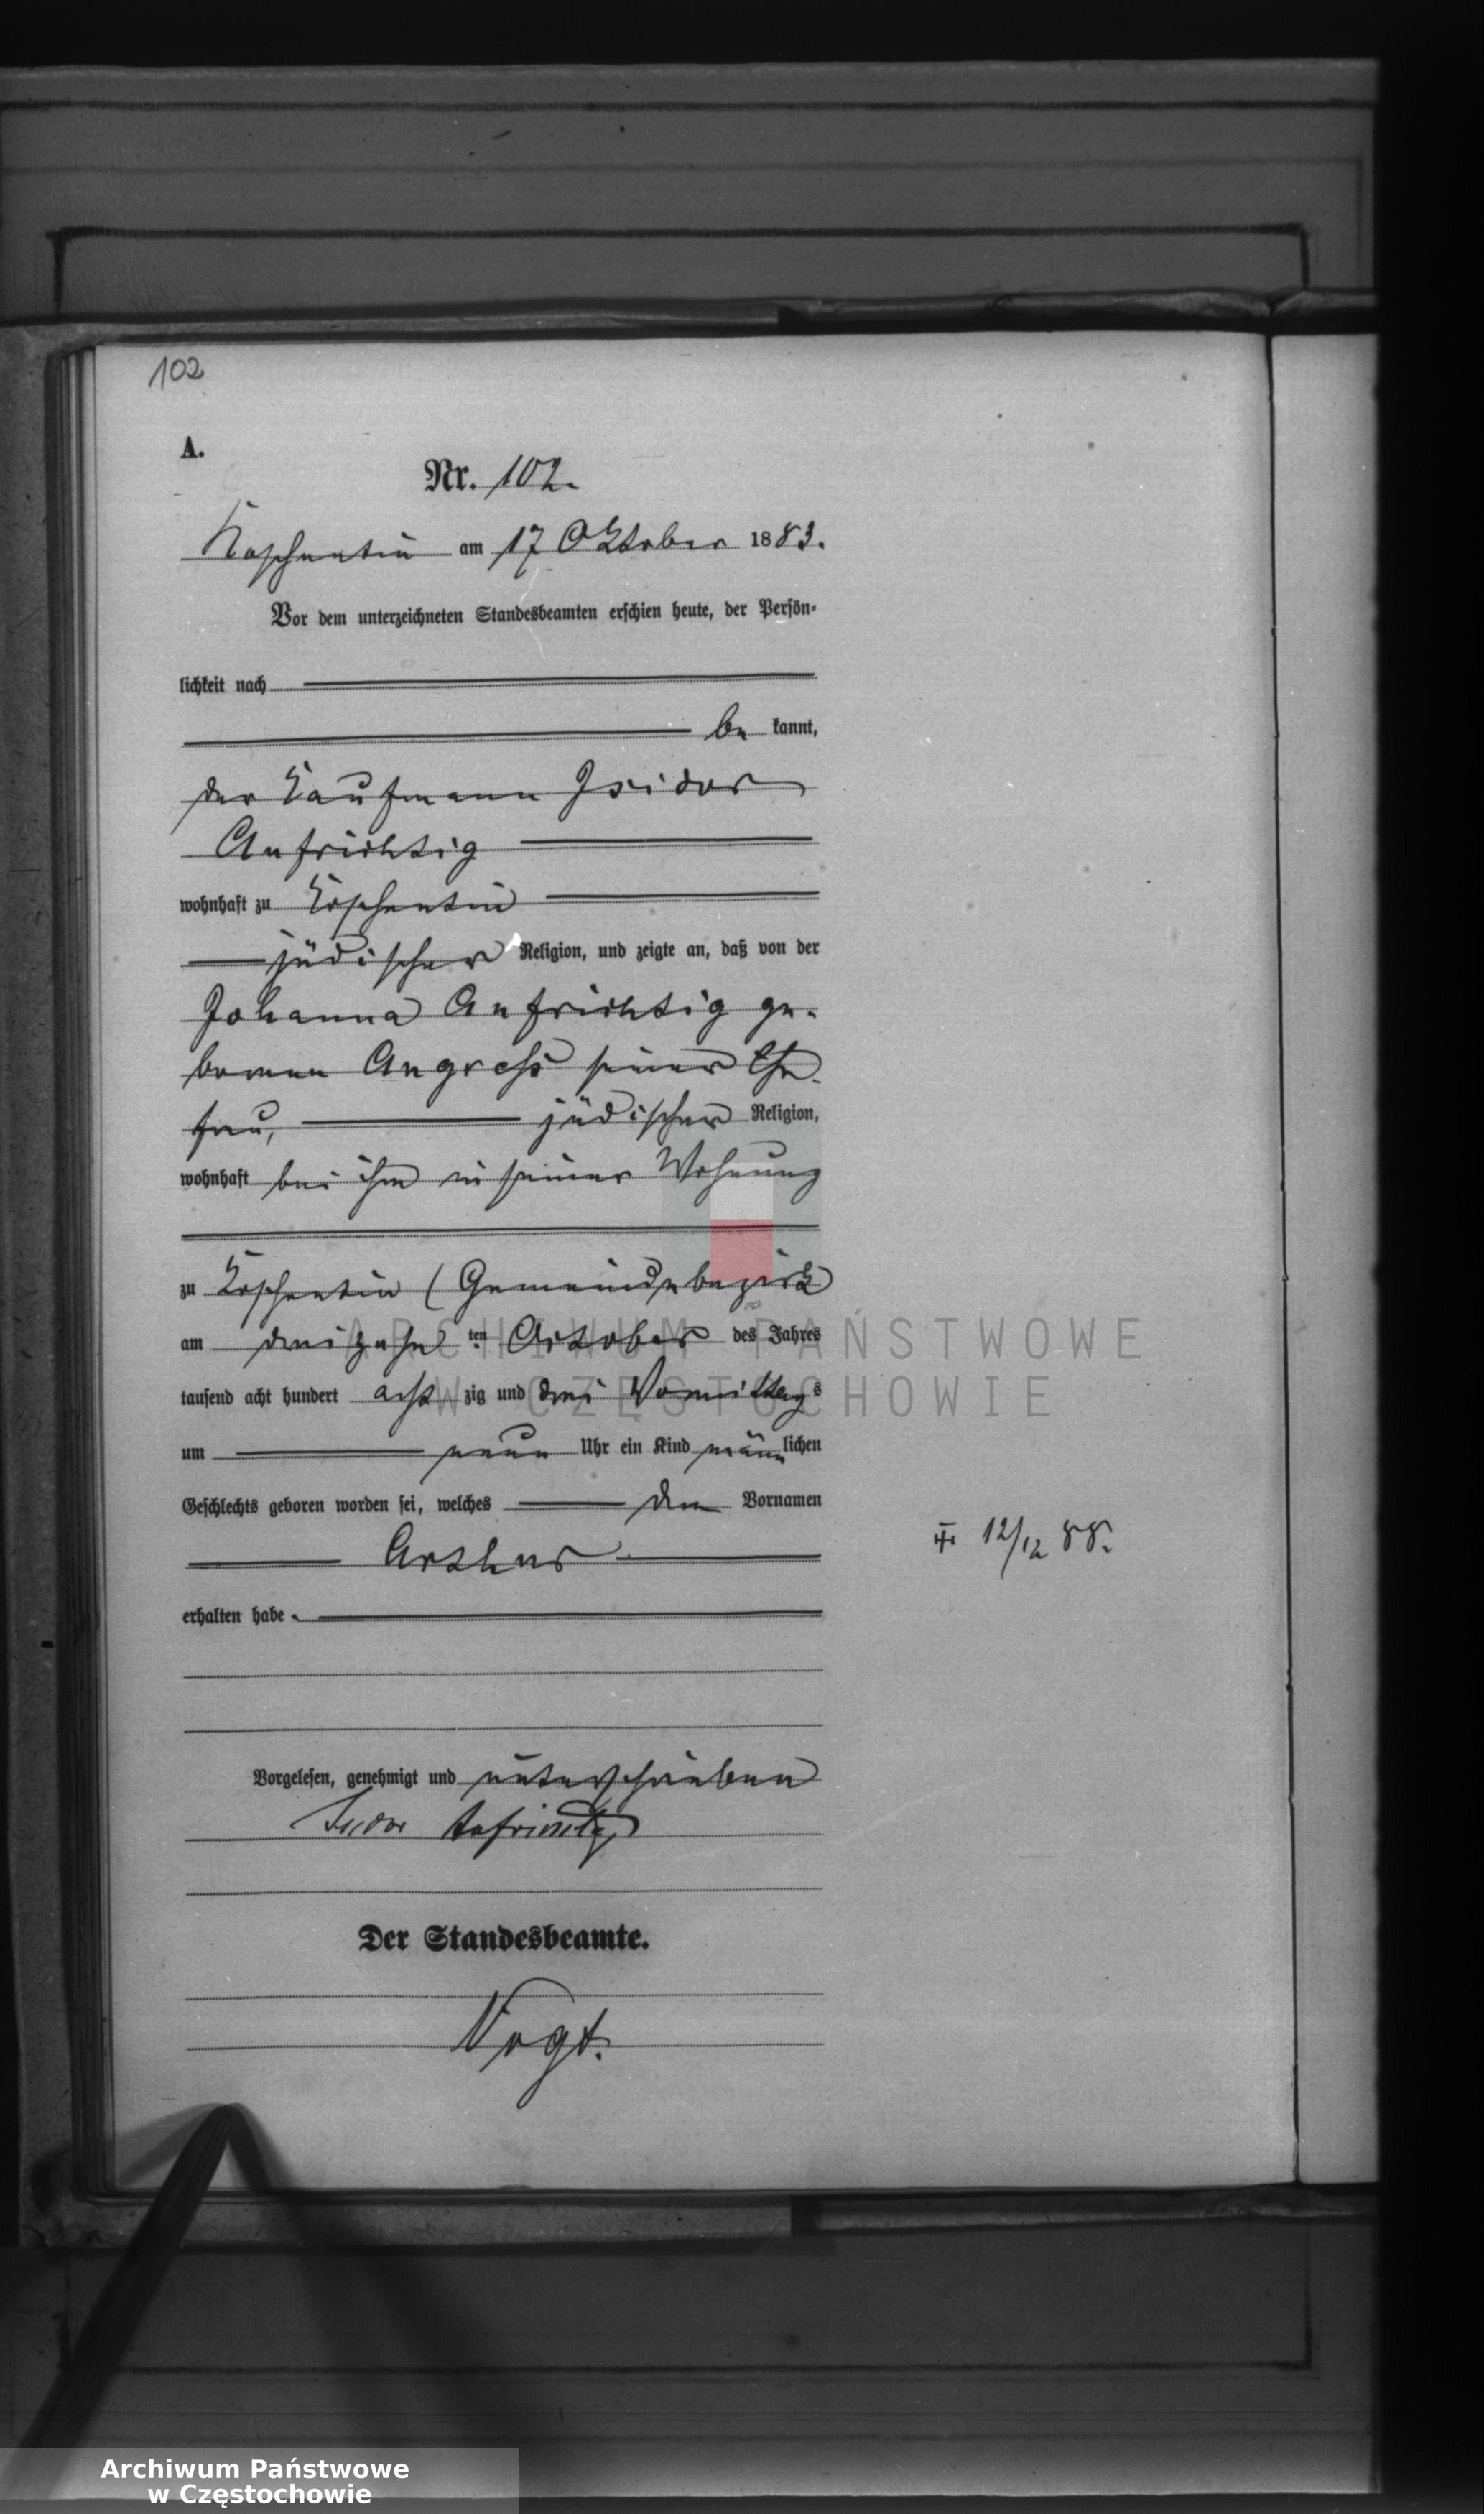 102
A.
Nr. 102.
Koschentin am 17 Oktober 1883.
Vor dem unterzeichneten Standesbeamten erschien heute, der Persön-
lichkeit nach
be kannt,
der Kaufmann Isidor
Aufrichtig
wohnhaft zu Koschentin
jüdischer Religion, und zeigte an, daß von der
Johanna Aufrichtig ge-
borenen Angress seiner Ehe-
frau, jüdischer Religion,
wohnhaft bei ihm in seiner Wohnung
zu Koschentin (Gemeindebezirk
am dreizehn ten October des Jahres
tausend acht hundert acht zig und drei Vormittags
um neun Uhr ein Kind männlichen
Geschlechts geboren worden sei, welches den Vornamen
Arthur
erhalten habe.
Vorgelesen, genehmigt und unterschrieben
Isidor Aufrichtig
Der Standesbeamte.
Vogt.
12/12 88.
ARCHIWUM PAŃSTWOWE
W CZĘSTOCHOWIE
Archiwum Państwowe
w Częstochowie